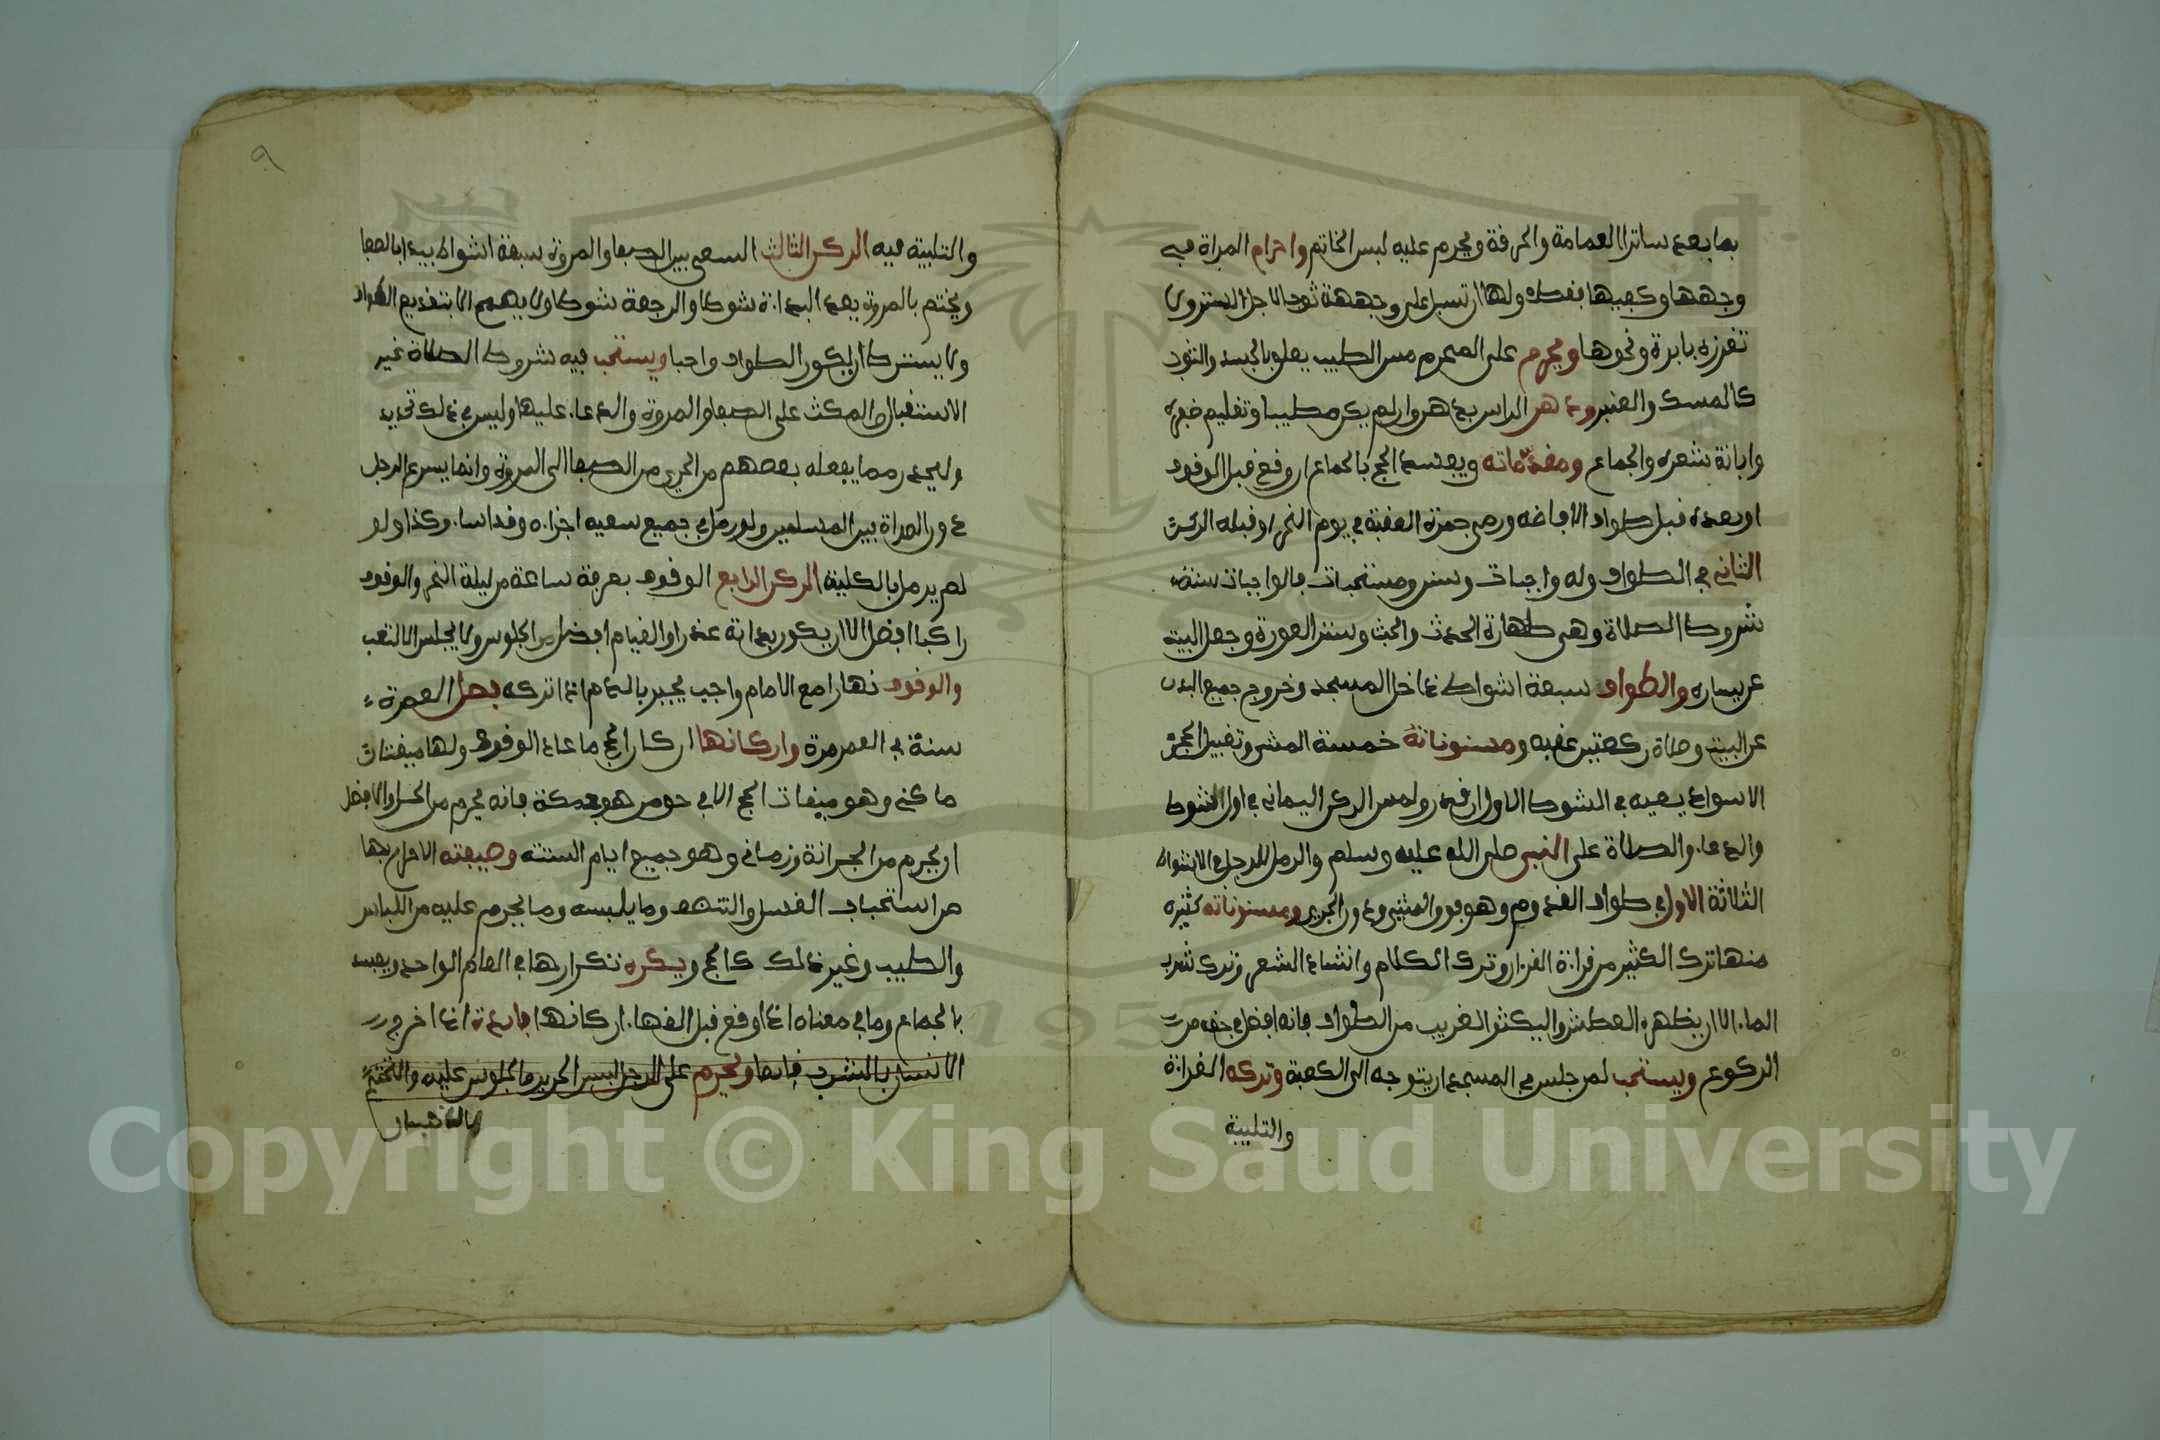 بما يعد ساترا العمامة والخرفة ويحرم عليه لبس الخاتم واحرام المراة في
وجهها وكفيها فقط ولها ان تسبل على وجهها ثوبا لاجل الستر ولا
تغرزه بابرة ونحوها ويحرم على المحرم مس الطيب يعلو بالجسد والثوب
كالمسك والعنبر ودهن الراس بدهن وان لم يكن مطيبا وتقليم ظفره
وابانة شعره والجماع ومقدماته ويفسد الحج بالجماع ان وقع قبل الوقوف
او بعده قبل طواف الافاضه ورمي جمرة العقبة في يوم النحر او قبله الركن
الثاني في الطواف وله واجبات وسنن ومستحبات فالواجبات ستة
شروط الصلاة وهي طهارة الحدث والخبث وستر العورة وجعل البيت
عن يساره والطواف سبعة اشواط داخل المسجد وخروج جميع البدن
عن البيت وصلاة ركعتين عقبه ومسنوناته خمسة المشي وتقبيل الحجر
الاسود بفيه في الشوط الاول ان قدر ولمس الركن اليماني في اول الشوط
والدعاء والصلاة على النبي صلى الله عليه وسلم والرمل للرجل في الاشواط
الثلاثة الاول في طواف القدوم وهو فوق المشي ودون الجري ومسنوناته كثيره
منها ترك الكثير من قراءة القرءان وترك الكلام وانشاد الشعر وترك شرب
الماء الا ان يظهره العطش واليكثر الغريب من الطواف فانه افضل في حقه من
الركوع ويستحب لمن جلس في المسجد ان يتوجه الى الكعبة وتركه القراءة
والتلبية
٩
والتلبية فيه الركن الثالث السعي بين الصفا والمروة سبعة اشواط يبدا بالصفا
ويختم بالمروة يعد البداءة شوطا والرجعة شوطا ولا يصح الا بتقديم الطواف
ولا يشترط ان يكون الطواف واجبا ويستحب فيه شروط الصلاة غير
الاستقبال والمكث على الصفا والمروة والدعاء عليها وليس في ذلك تحديد
وليحذر مما يفعله بعضهم من الجري من الصفا الى المروة وانما يسرع الرجل
دون المراة بين الميلين ولو رمل في جميع سعيه اجزاه وقد اساء وكذا ولو
لم يرمل بالكلية الركن الرابع الوقوف بعرفة ساعة من ليلة النحر والوقوف
راكبا افضل الا ان يكون بدابته عذرا والقيام افضل من الجلوس ولا يجلس الا لتعب
والوقوف نهارا مع الامام واجب يجبر بالدم اذا تركه فصل العمرة
سنة في العمر مرة واركانها اركان الحج ما عدا الوقوف ولها ميقتان
مكني وهو ميقات الحج الا في حق من هو بمكة فانه يحرم من الحل والافضل
ان يحرم من الجعرانة وزماني وهو جميع ايام السنة وصيفته الاحرام بها
من استحباب الغسل والتنظف وما يلبسه وما يحرم عليه من اللباس
والطيب وغير ذلك كالحج ويكره تكرارها في العام الواحد ويفسد
بالجماع وما في معناه اذا وقع قبل انقضاء اركانها فايدة اذا خرج
الانسان بالشرب فانما ويحرم على الرجل لبس الحرير والجلوس عليه والتختم
بالذهب
Copyright © King Saud University
1957